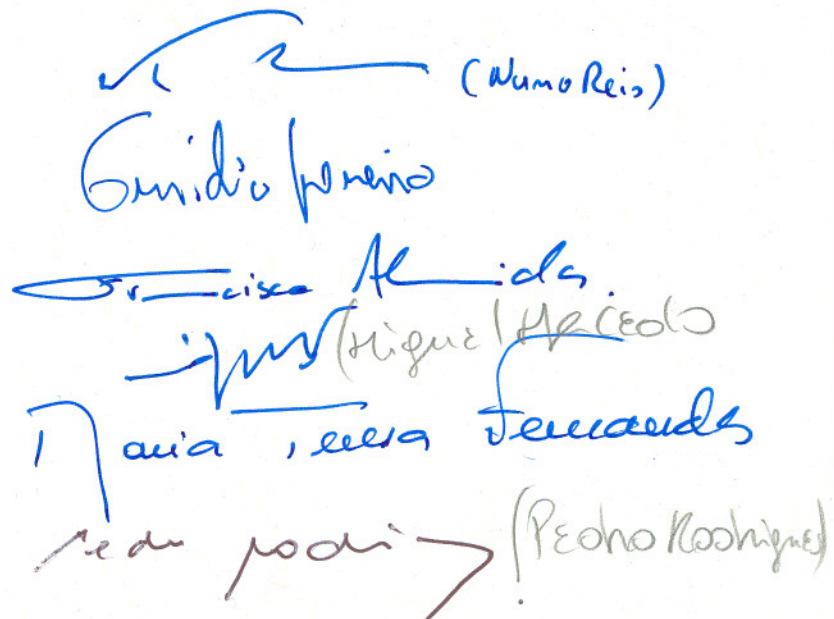 (Nuno Reis)
Emídio Guerreiro
Francisco Almeida
(Miguel Macedo
Maria Teresa Fernandes
Pedro Rodrig (Pedro Rodrigues)